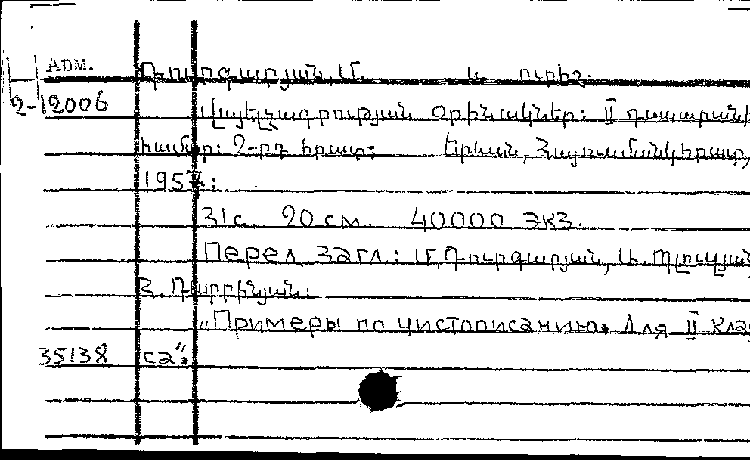 Арм.
Դուրգարյան, Մ. և ուրիշ.
2-2006 Վայելչագրության օրինակներ: II դասարանի
համար: 2-րդ հրատ: Երևան, Հայուսմանկհրատ,
195
31с. 20см 40000 экз.
Перел загл.: Մ. Դուրգարյան,
Հ.
„Примеры по чистописанию. Для II клас
35138 са".